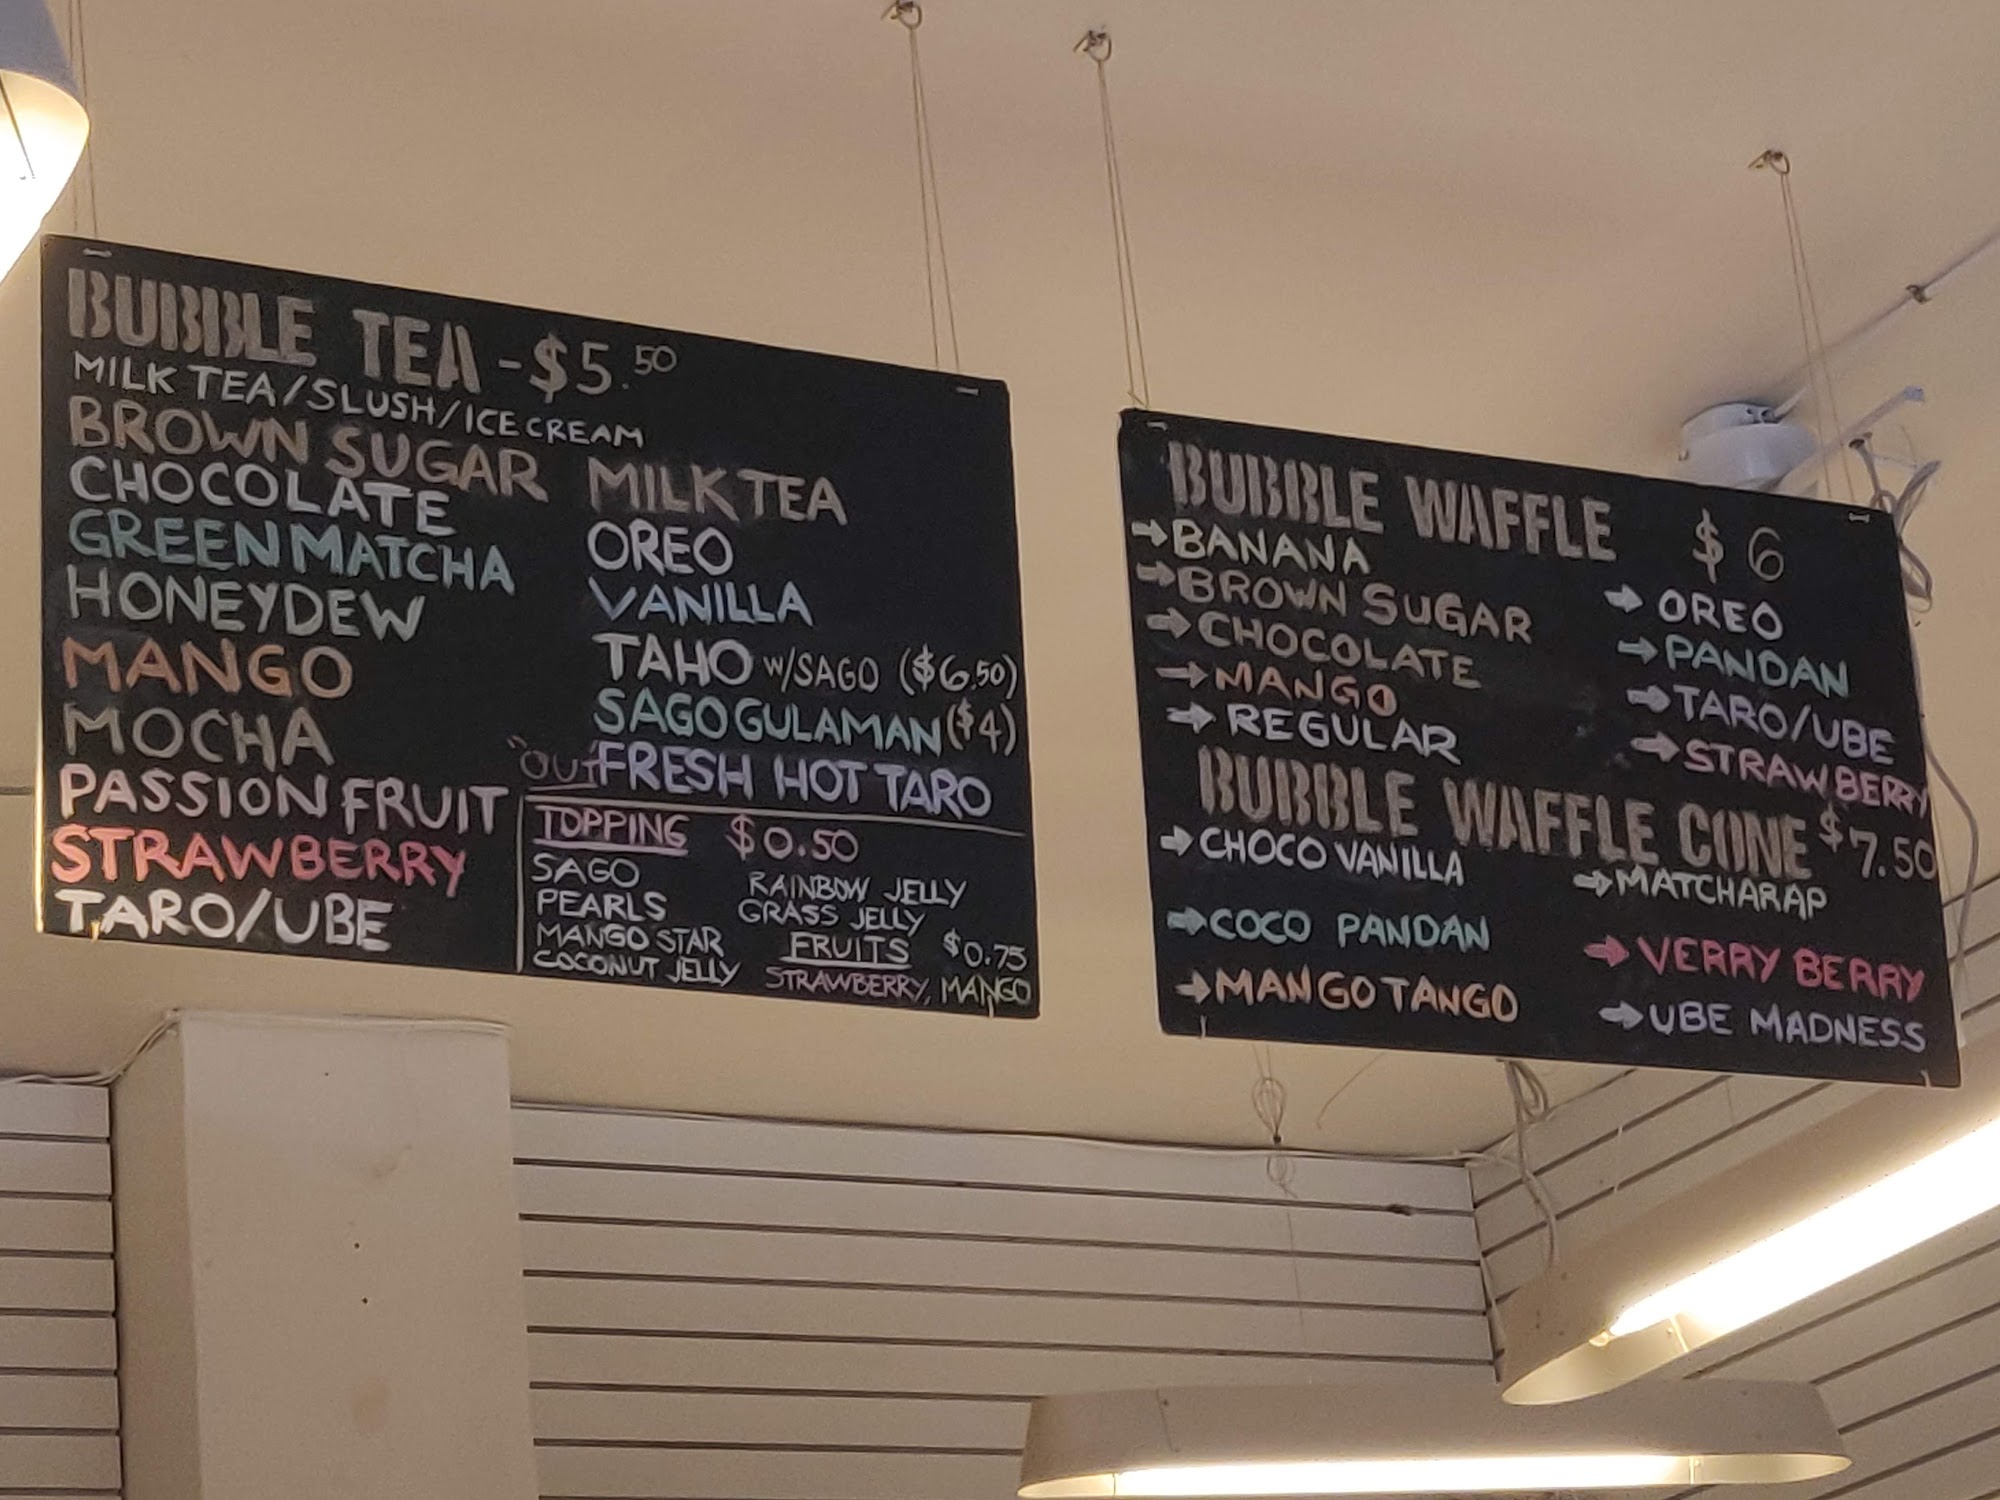 BUBBLE TEA - $5.50
MILK TEA/SLUSH/ICE CREAM
BROWN SUGAR
CHOCOLATE
GREEN MATCHA
HONEYDEW
MANGO
MOCHA
PASSION FRUIT
STRAWBERRY
TARO/UBE
MILK TEA
OREO
VANILLA
TAHO W/SAGO ($6.50)
SAGO GULAMAN ($4)
"OUT" FRESH HOT TARO
TOPPING $0.50
SAGO
PEARLS
MANGO STAR
COCONUT JELLY
RAINBOW JELLY
GRASS JELLY
FRUITS $0.75
STRAWBERRY, MANGO
BUBBLE WAFFLE $6
→BANANA
→BROWN SUGAR
→CHOCOLATE
→MANGO
→REGULAR
→OREO
→PANDAN
→TARO/UBE
→STRAWBERRY
BUBBLE WAFFLE CONE $7.50
→CHOCO VANILLA
→COCO PANDAN
→MANGO TANGO
→MATCHARAP
→VERRY BERRY
→UBE MADNESS